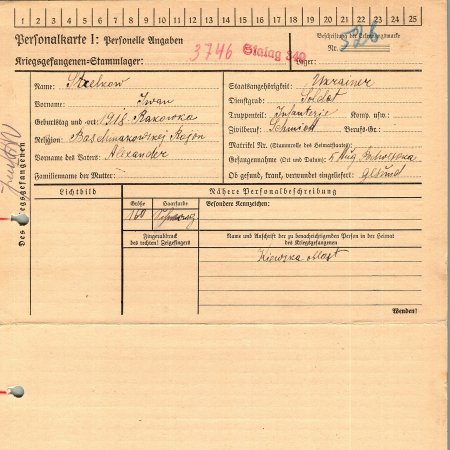 1 2 3 4 5 6 7 8 9 10 11 12 13 14 15 16 17 18 19 20 21 22 23 24 25
Personalkarte I: Personelle Angaben
Kriegsgefangenen-Stammlager:
3746 Stalag 340
Beschriftung der Erkennungsmarke
Nr. 526
Lager:
Des Kriegsgefangenen
Name: Strelkow
Vorname: Iwan
Geburtstag und -ort: 1918. Rakowka
Religion: Baschmakowskej Rajon
Vorname des Vaters: Alexander
Familienname der Mutter:
Staatsangehörigkeit: Ukrainer
Dienstgrad: Soldat
Truppenteil: Infanterie Komp. usw.:
Zivilberuf: Schmidt Berufs-Gr.:
Matrikel Nr. (Stammrolle des Heimatstaates):
Gefangennahme (Ort und Datum): 5 Aug.
Ob gesund, krank, verwundet eingeliefert: gesund
Lichtbild
Nähere Personalbeschreibung
Größe Haarfarbe Besondere Kennzeichen:
160 Schwarz
Fingerabdruck
des rechten! Zeigefingers
Name und Anschrift der zu benachrichtigenden Person in der Heimat
des Kriegsgefangenen
Wenden!